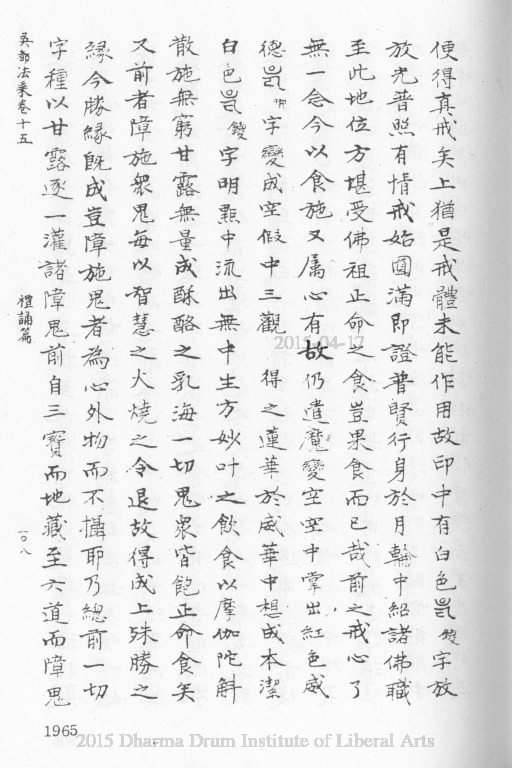 便得真戒矣上猶是戒體未能作用故印中有白色 鑁字放
放光普照有情戒始圓滿即證普賢行身於月輪中紹諸佛職
至此地位方堪受佛祖正命之食豈果食而已哉前之戒心了
無一念今以食施又属心有故仍遣魔變空空中掌出紅色威
德 字變成空假中三觀 得之蓮華於威華中想成本潔
白色 鑁字明點中流出無中生方妙叶之飲食以摩伽陀斛
散施無窮甘露無量成酥酪之乳海一切鬼衆皆飽正命食矣
又前者障施衆鬼每以智慧之火燒之令退故得成上殊勝之
緣今勝緣既成豈障施鬼者為心外物而不攝耶乃總前一切
字種以甘露逐一灌諸障鬼前自三寶而地藏至六道而障鬼
吳都法乘卷十五
禮誦篇
一〇八
1965
2015-04-17
2015 Dharma Drum Institute of Liberal Arts